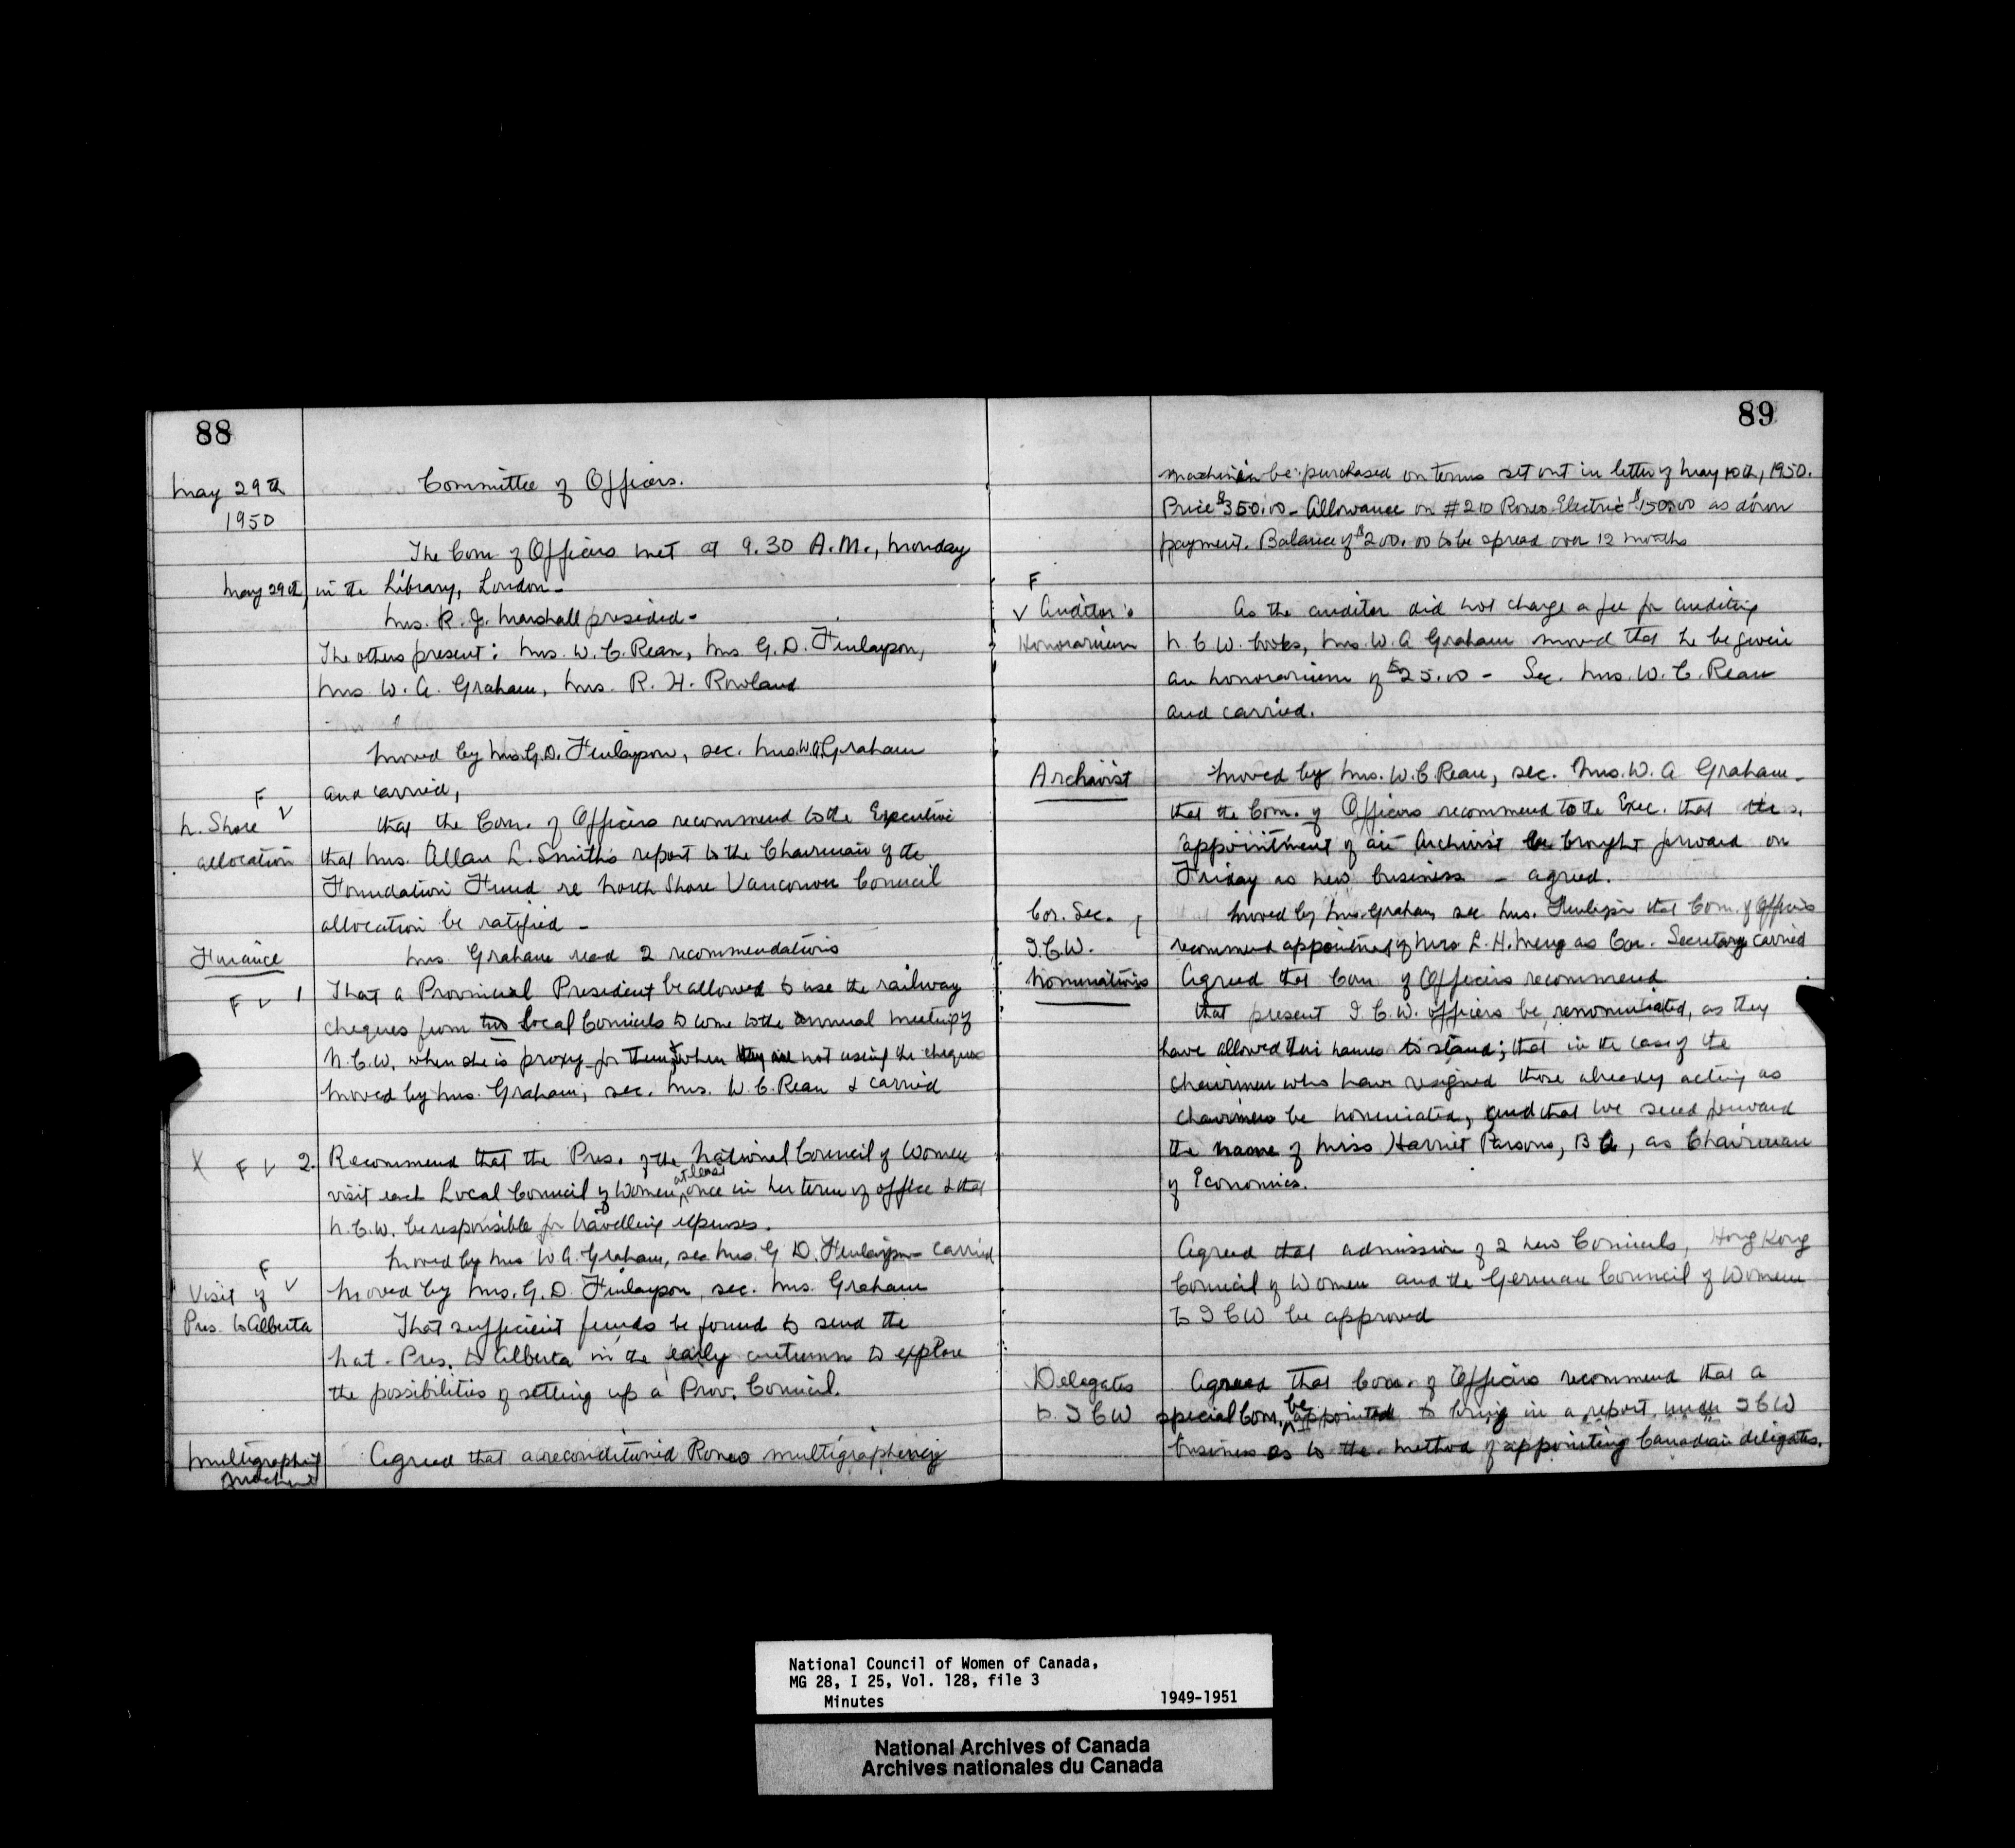 88
May 29th
1950
Committee of Officers.
The Com of Officers met at 9.30 A.M., Monday
May 29th, in the Library, London -
Mrs. R. J. Marshall presided -
The others present: Mrs. W. C. Rean, Mrs G. D. Finlayson,
Mrs W. A. Graham, Mrs. R. H. Rowland
Moved by Mrs G.D. Finlayson, sec. Mrs. W.A. Graham
and carried,
F V
N. Shore
allocation
that the Com. of Officers recommend to the Executive
that Mrs. Allan L. Smith's report to the Chairman of the
Foundation Fund re North Shore Vancouver Council
allocation be ratified -
Finance
Mrs. Graham read 2 recommendations
F V 1
That a Provincial President be allowed to use the railway
cheques from two Local Councils to come to the annual meeting of
N.C.W. when she is proxy for them & when they are not using the cheques
Moved by Mrs. Graham, sec. Mrs. W. C. Rean & carried
X F V 2.
Recommend that the Pres. of the National Council of Women
visit each Local Council of Women, at least once in her term of office & that
N.C.W. be responsible for travelling expenses.
Moved by Mrs W A. Graham, sec Mrs. G D. Finlayson - carried
F V
Visit of
Pres. to Alberta
Moved by Mrs. G. D. Finlayson, sec. Mrs. Graham
That sufficient funds be found to send the
Nat. Pres. to Alberta in the early autumn to explore
the possibilities of setting up a Prov. Council.
Multigraphing
Machine
Agreed that a reconditioned Roneo multigraphing
89
machine be purchased on terms set out in letter of May 10th, 1950.
Price $350.00 - Allowance on #210 Roneo Electric $150.00 as down
payment. Balance of $200.00 to be spread over 12 months
F
V Auditor's
Honorarium
As the auditor did not charge a fee for auditing
N.C.W. books, Mrs. W. A Graham moved that he be given
an honorarium of $25.00 - Sec. Mrs. W. C. Rean
and carried.
Archivist
Moved by Mrs. W. C. Rean, sec. Mrs. W. A Graham -
that the Com. of Officers recommend to the Exec. that the
appointment of an Archivist be brought forward on
Friday as new business - agreed.
Cor. Sec.
Moved by Mrs. Graham, sec Mrs. Finlayson that Com. of Officers
recommend appointment of Mrs L. H. as Cor. Secretary carried
I.C.W.
Nominations
Agreed that Com of Officers recommend
that present I.C.W. officers be renominated, as they
have allowed their names to stand; that in the case of the
chairmen who have resigned those already acting as
chairmen be nominated, and that we send forward
the name of Miss Harriet Parsons, B A, as Chairman
of Economics.
Agreed that admission of 2 new Councils, Hong Kong
Council of Women and the German Council of Women
to I C W be approved
Delegates
to I C W
Agreed that Com. of Officers recommend that a
special Com. be appointed to bring in a report under I C W
business as to the method of appointing Canadian delegates.
National Council of Women of Canada,
MG 28, I 25, Vol. 128, file 3
Minutes 1949-1951
National Archives of Canada
Archives nationales du Canada